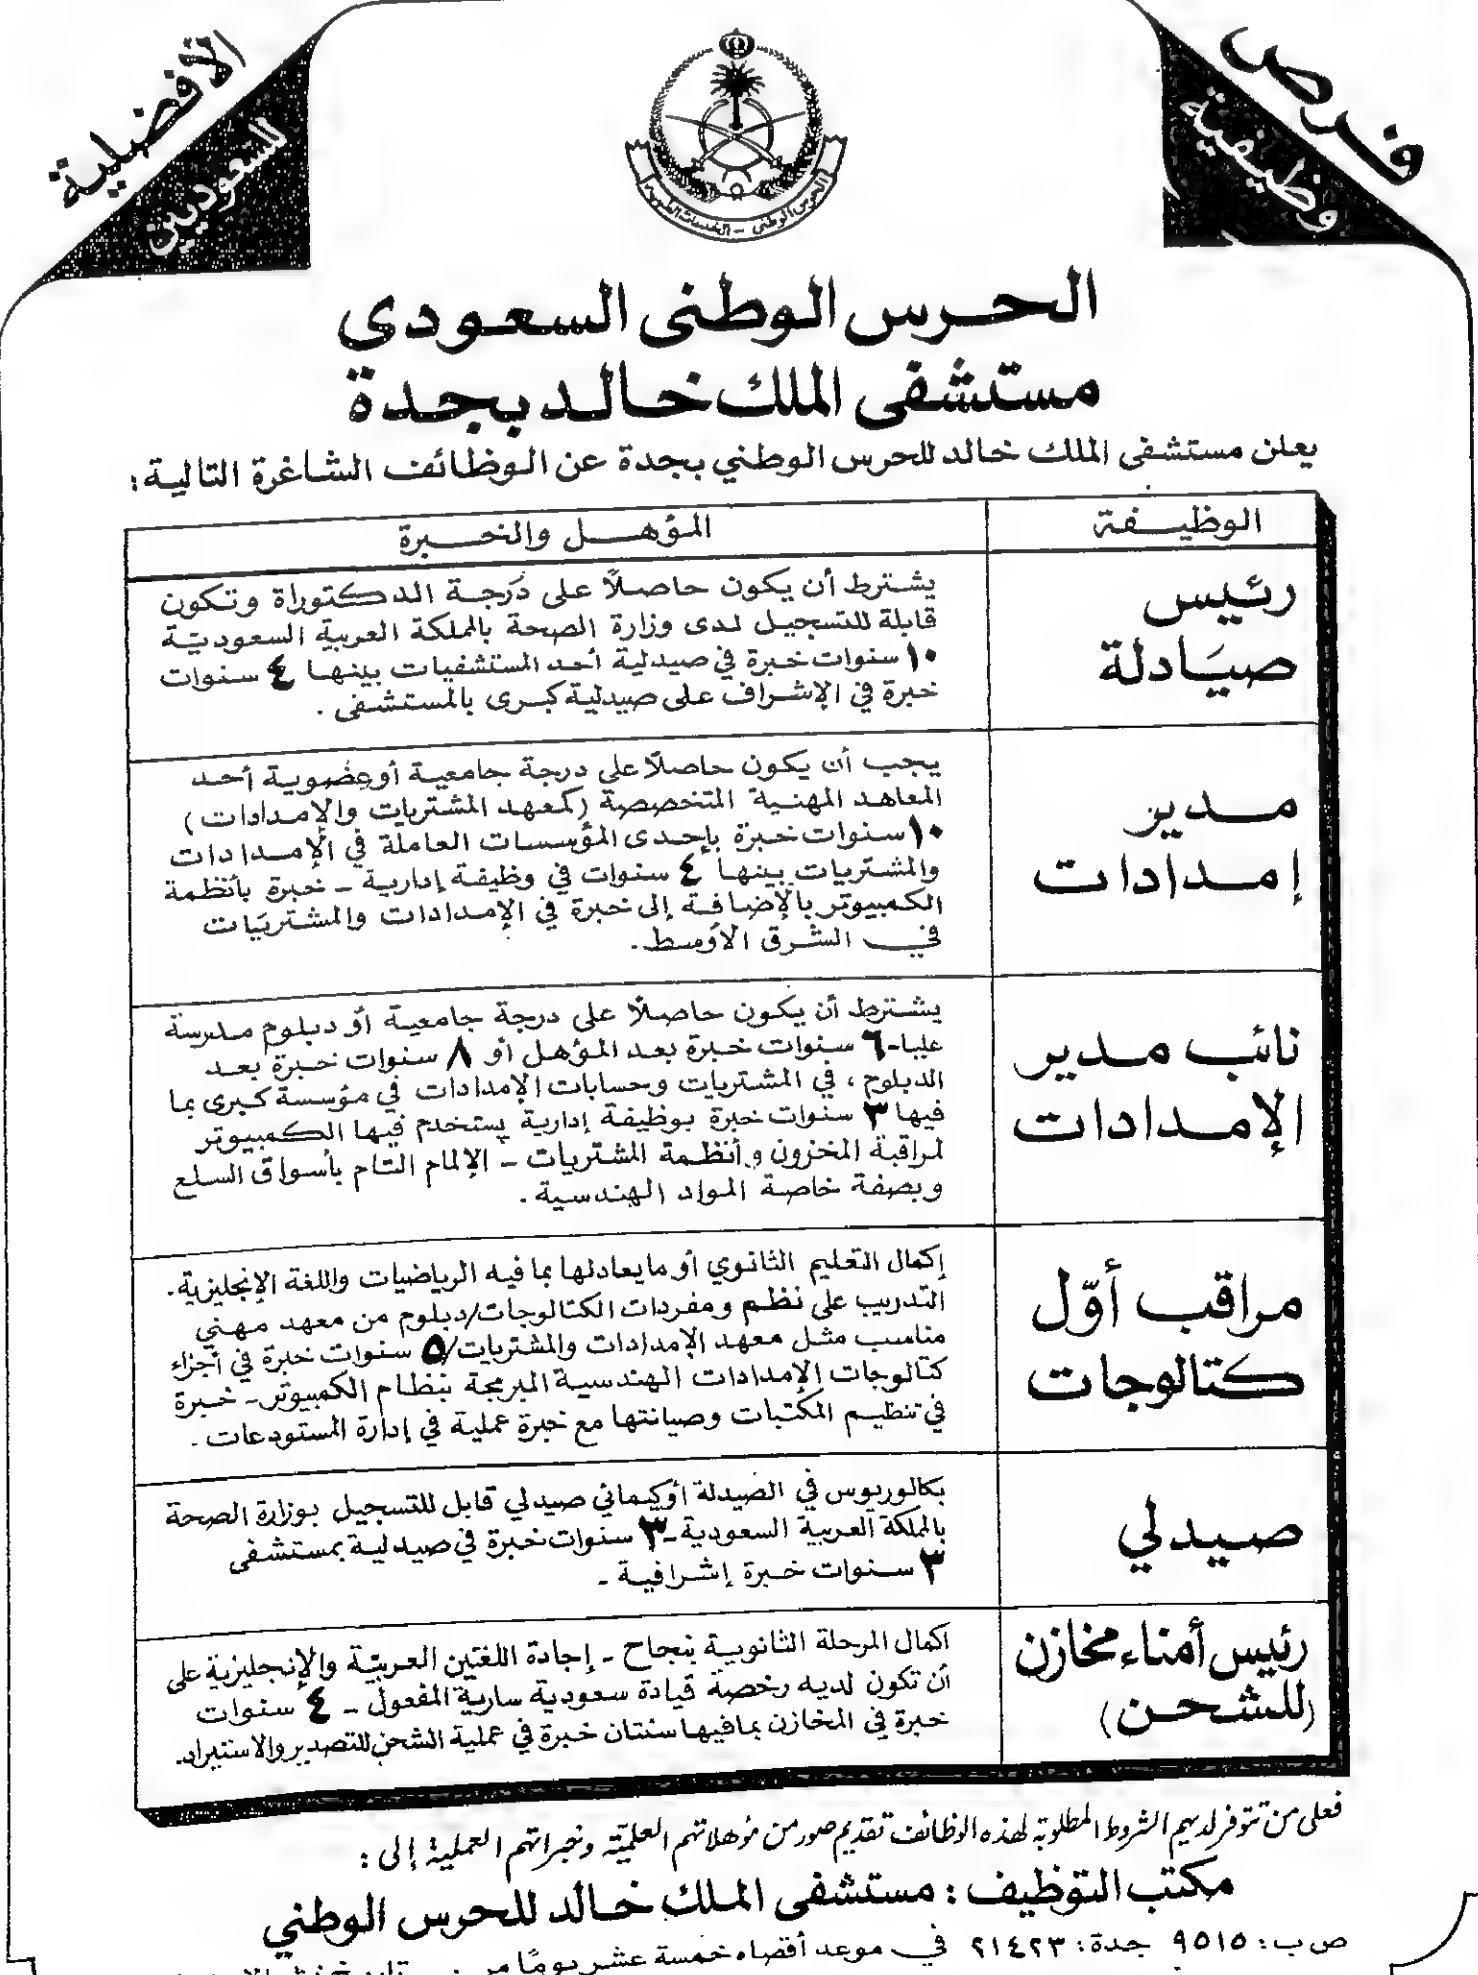 فرص
وظيفية
الأفضلية
للسعوديين
الحرس الوطني - الخدمات الطبية
الحرس الوطنى السعودى
مستشفى الملك خالد بجدة
يعلن مستشفى الملك خالد للحرس الوطني بجدة عن الوظائف الشاغرة التالية:
الوظيفة
المؤهل والخبرة
رئيس
صيَادلة
يشترط أن يكون حاصلًا على دَرجة الدكتوراة وتكون
قابلة للتسجيل لدى وزارة الصحة بالمملكة العربية السعوديّة
١٠ سنوات خبرة في صيدلية أحد المستشفيات بينها ٤ سنوات
خبرة في الإشراف على صيدلية كبرى بالمستشفى .
مدير
إمدادات
يجب أن يكون حاصلًا على درجة جامعية أو عضوية أحد
المعاهد المهنية المتخصصة (كمعهد المشتريات والإمدادات)
١٠ سنوات خبرة بإحدى المؤسسات العاملة في الإمدادات
والمشتريات بينها ٤ سنوات في وظيفة إدارية - خبرة بأنظمة
الكمبيوتر بالإضافة إلى خبرة في الإمدادات والمشتريَات
في الشرق الأوسط.
نائب مدير
الإمدادات
يشترط أن يكون حاصلًا على درجة جامعية أو دبلوم مدرسة
عليا-٦ سنوات خبرة بعد المؤهل أو ٨ سنوات خبرة بعد
الدبلوم، في المشتريات وحسابات الإمدادات في مؤسسة كبرى بما
فيها ٣ سنوات خبرة بوظيفة إدارية يستخدم فيها الكمبيوتر
لمراقبة المخزون وأنظمة المشتريات - الإلمام التام بأسواق السلع
وبصفة خاصة المواد الهندسية .
مراقب أوّل
كتالوجات
إكمال التعليم الثانوي أو مايعادلها بما فيه الرياضيات واللغة الإنجليزية.
التدريب على نظم ومفردات الكتالوجات/دبلوم من معهد مهني
مناسب مثل معهد الإمدادات والمشتريات/٥ سنوات خبرة في أجزاء
كتالوجات الإمدادات الهندسية المبرمجة بنظام الكمبيوتر- خبرة
في تنظيم المكتبات وصيانتها مع خبرة عملية في إدارة المستودعات .
صيدلي
بكالوريوس في الصيدلة أوكيمائي صيدلي قابل للتسجيل بوزارة الصحة
بالمملكة العربية السعودية-٣ سنوات خبرة في صيدلية بمستشفى
٣ سنوات خبرة إشرافية .
رئيس أمناء مخازن
(للشحن)
اكمال المرحلة الثانوية بنجاح - إجادة اللغتين العربيّة والإنجليزية على
أن تكون لديه رخصة قيادة سعودية سارية المفعول - ٤ سنوات
خبرة في المخازن بمافيها سنتان خبرة في عملية الشحن للتصدير والاستيراد.
فعلى من تتوفر لديهم الشروط المطلوبة لهذه الوظائف تقديم صور من مؤهلاتهم العلميّة وخبراتهم العملية إلى :
مكتب التوظيف : مستشفى الملك خالد للحرس الوطني
ص ب: ٩٥١٥ جدة: ٢١٤٢٣ في موعد أقصاه خمسة عشر يومًا من